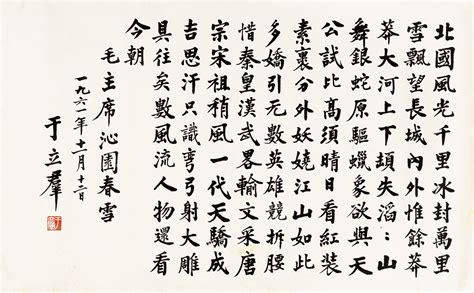 北國風光千里冰封萬里
雪飄望長城內外惟餘莽
莽大河上下頓失滔:山
舞銀蛇原驅蠟象欲與天
公試比高須晴日看紅裝
素裹分外妖嬈江山如此
多嬌引无數英雄競折腰
惜秦皇漢武畧輸文采唐
宗宋祖稍風一代天驕成
吉思汗只識彎弓射大雕
俱往矣數風流人物還看
今朝
毛主席沁園春雪
一九六一年十一月十二日
于立羣